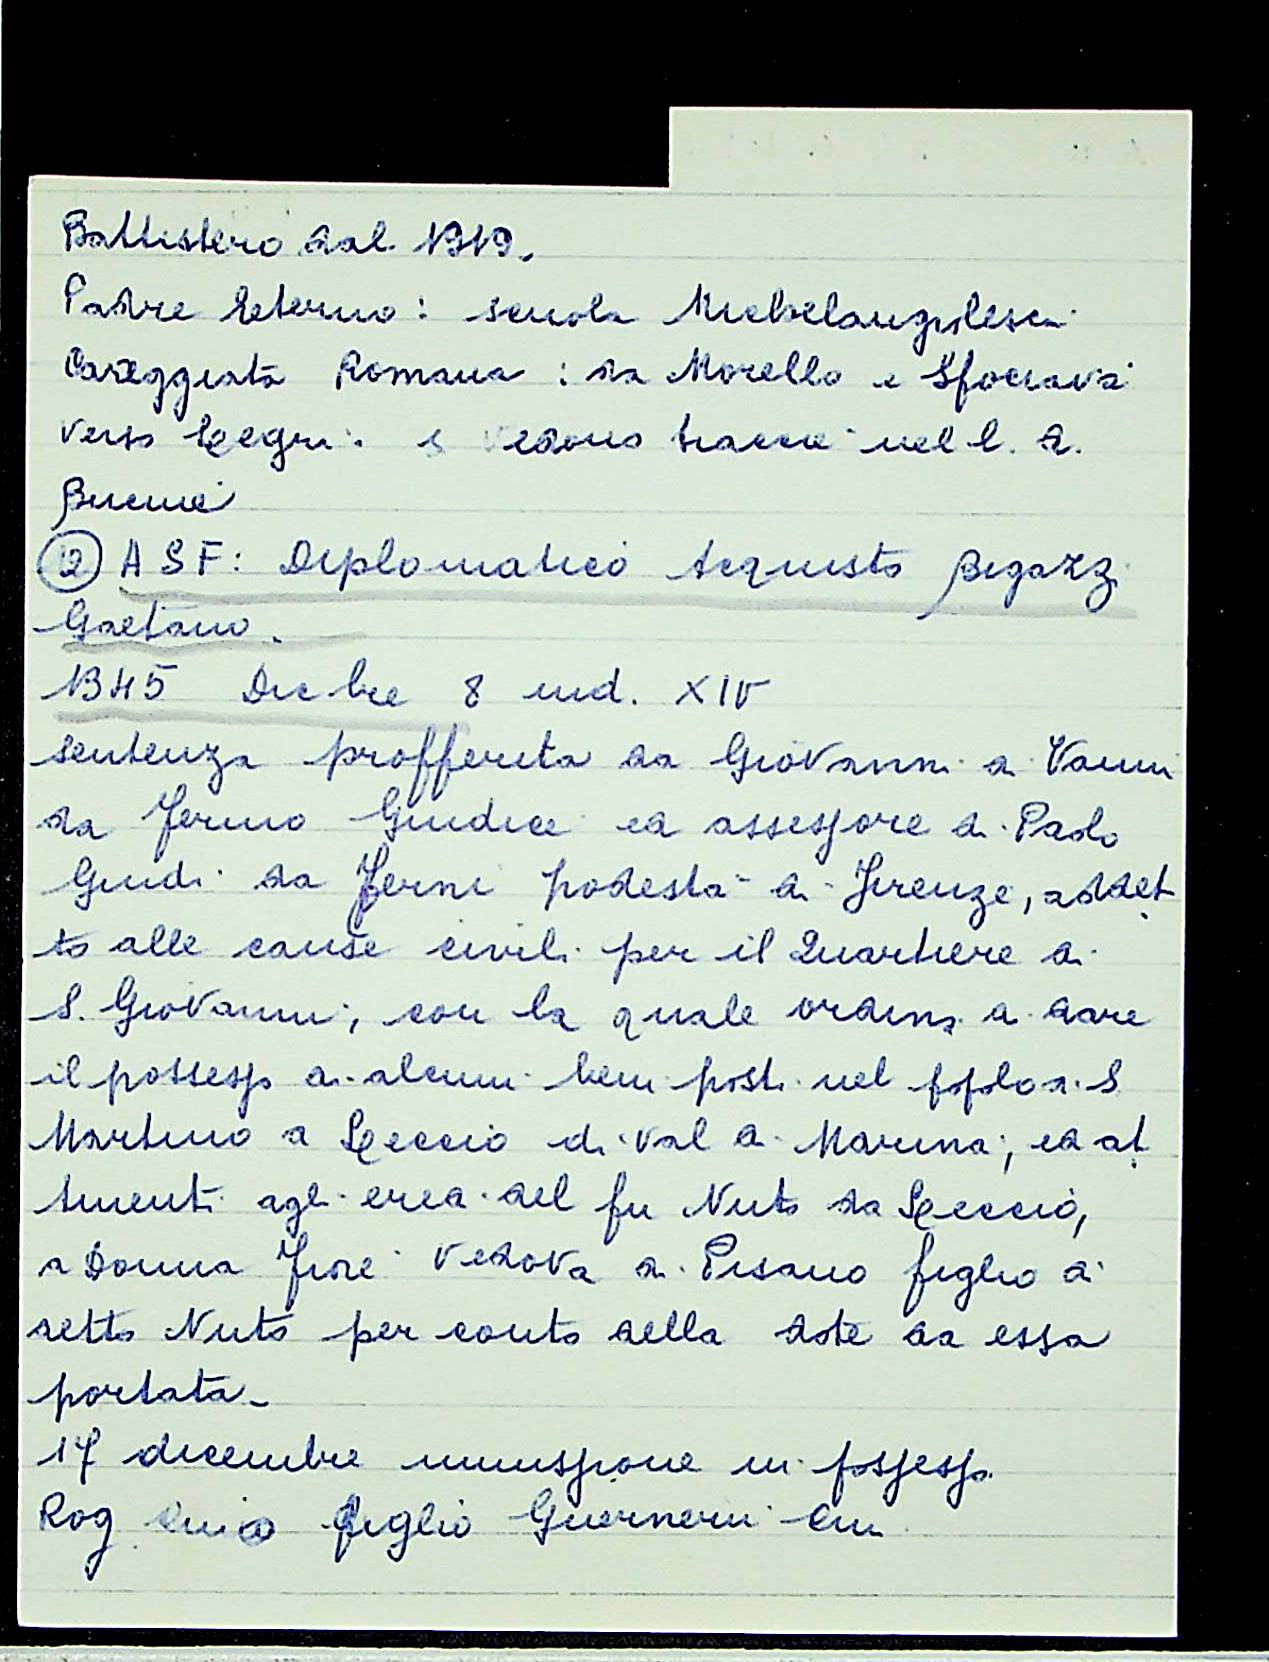 Battistero dal 1919.
Padre Eterno: scuola Michelangolesca
Careggiata Romana: da Morello e sfociava
verso Legri. si vedono tracce nel l. d.
⑫ ASF: Diplomatico Acquisto Bigazzi
Gaetano.
1345 Dicbre 8 ind. XIV
Sentenza profferita da Giovanni di Vanni
da Fermo Giudice ed assessore di Paolo
Guidi da Terni podestà di Firenze, addet
to alle cause civili per il Quartiere di
S. Giovanni, con la quale ordina di dare
il possesso di alcuni beni posti nel popolo di S
Martino a Leccio di val di Marina, ed at
tinenti agli eredi del fu Nuto da Leccio,
a Donna Fiore vedova di Pisano figlio di
detto Nuto per conto della dote da essa
portata.
17 dicembre immissione in possesso
Rog figlio Guernerii